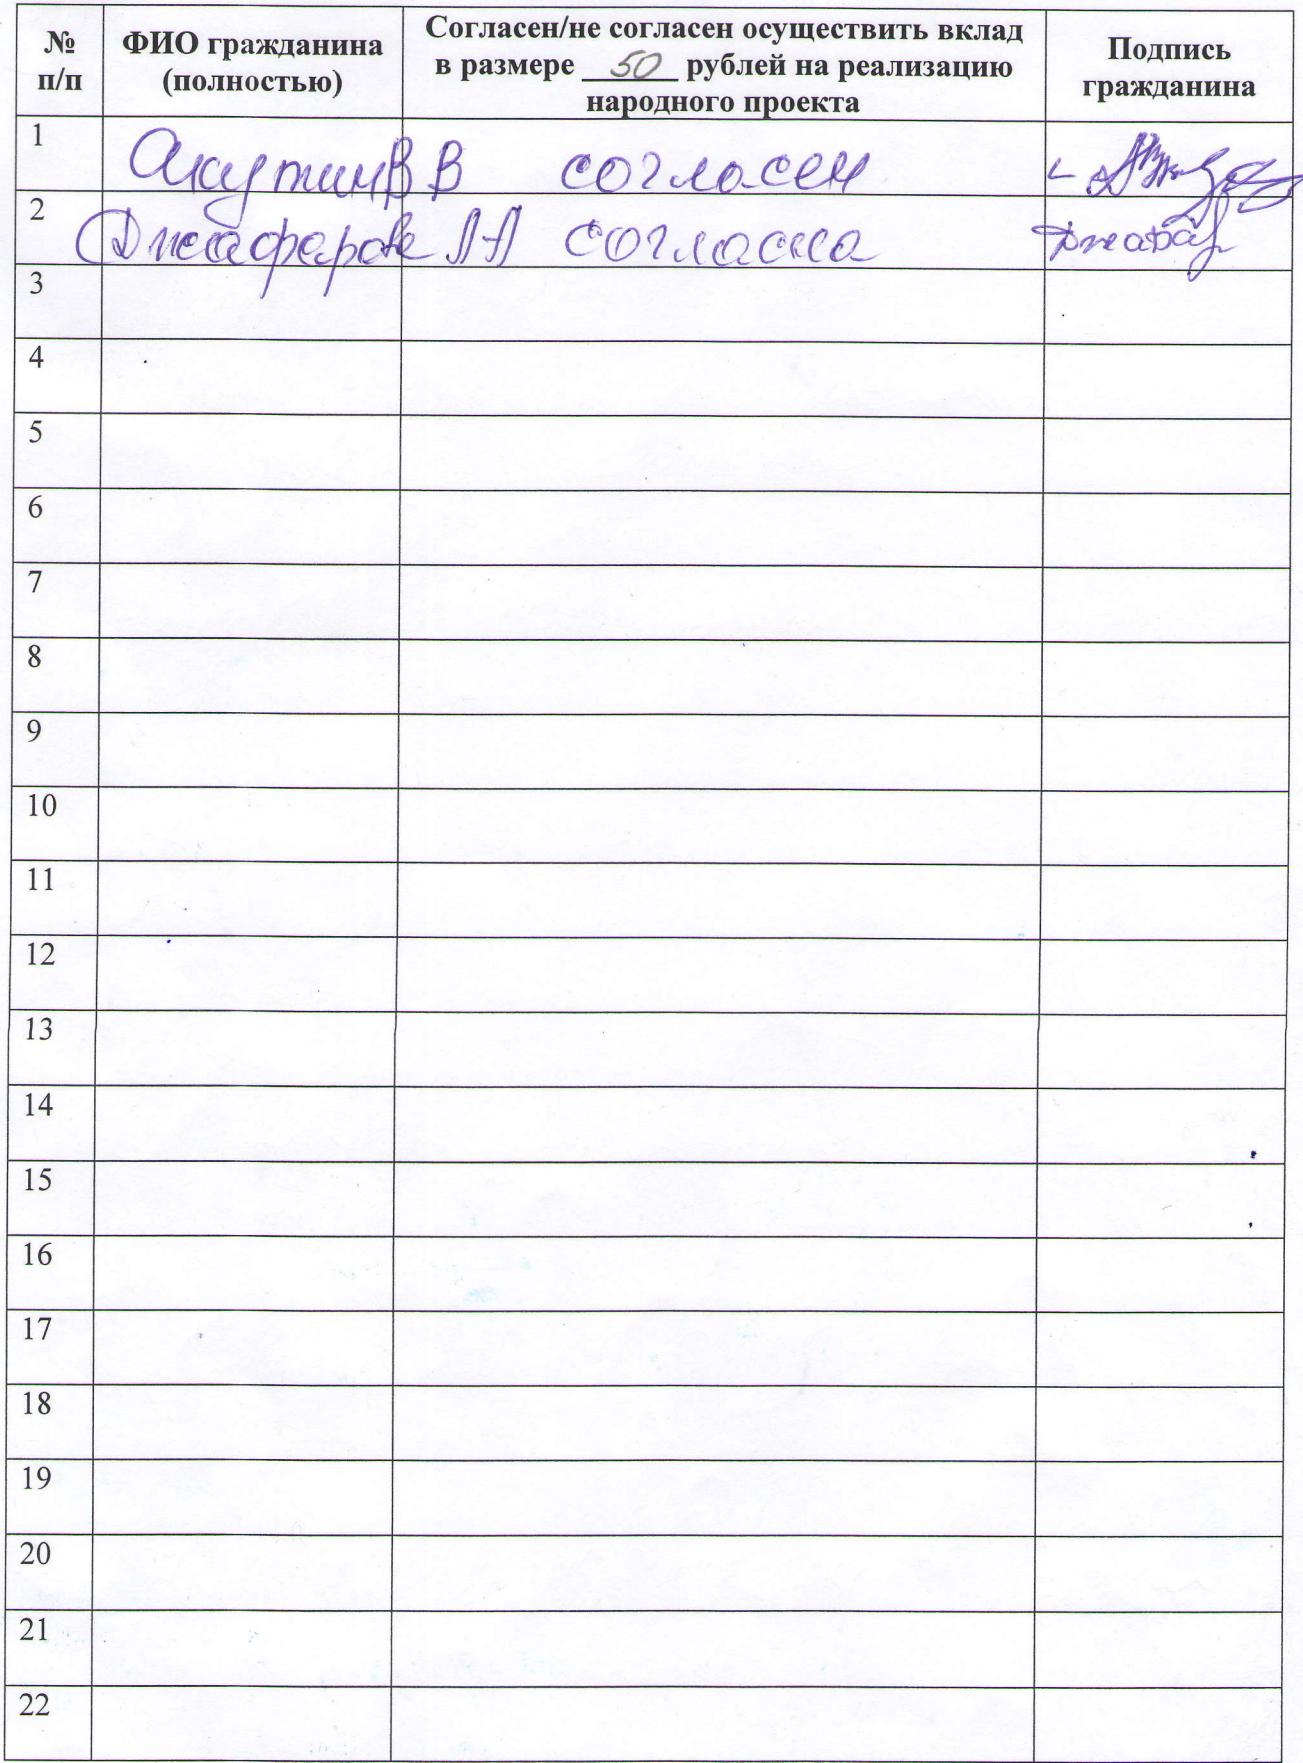 № п/п
ФИО гражданина (полностью)
Согласен/не согласен осуществить вклад
в размере 50 рублей на реализацию
народного проекта
Подпись гражданина
1 Акутин В В согласен
2 Джафарова Л А согласна
3
4
5
6
7
8
9
10
11
12
13
14
15
16
17
18
19
20
21
22